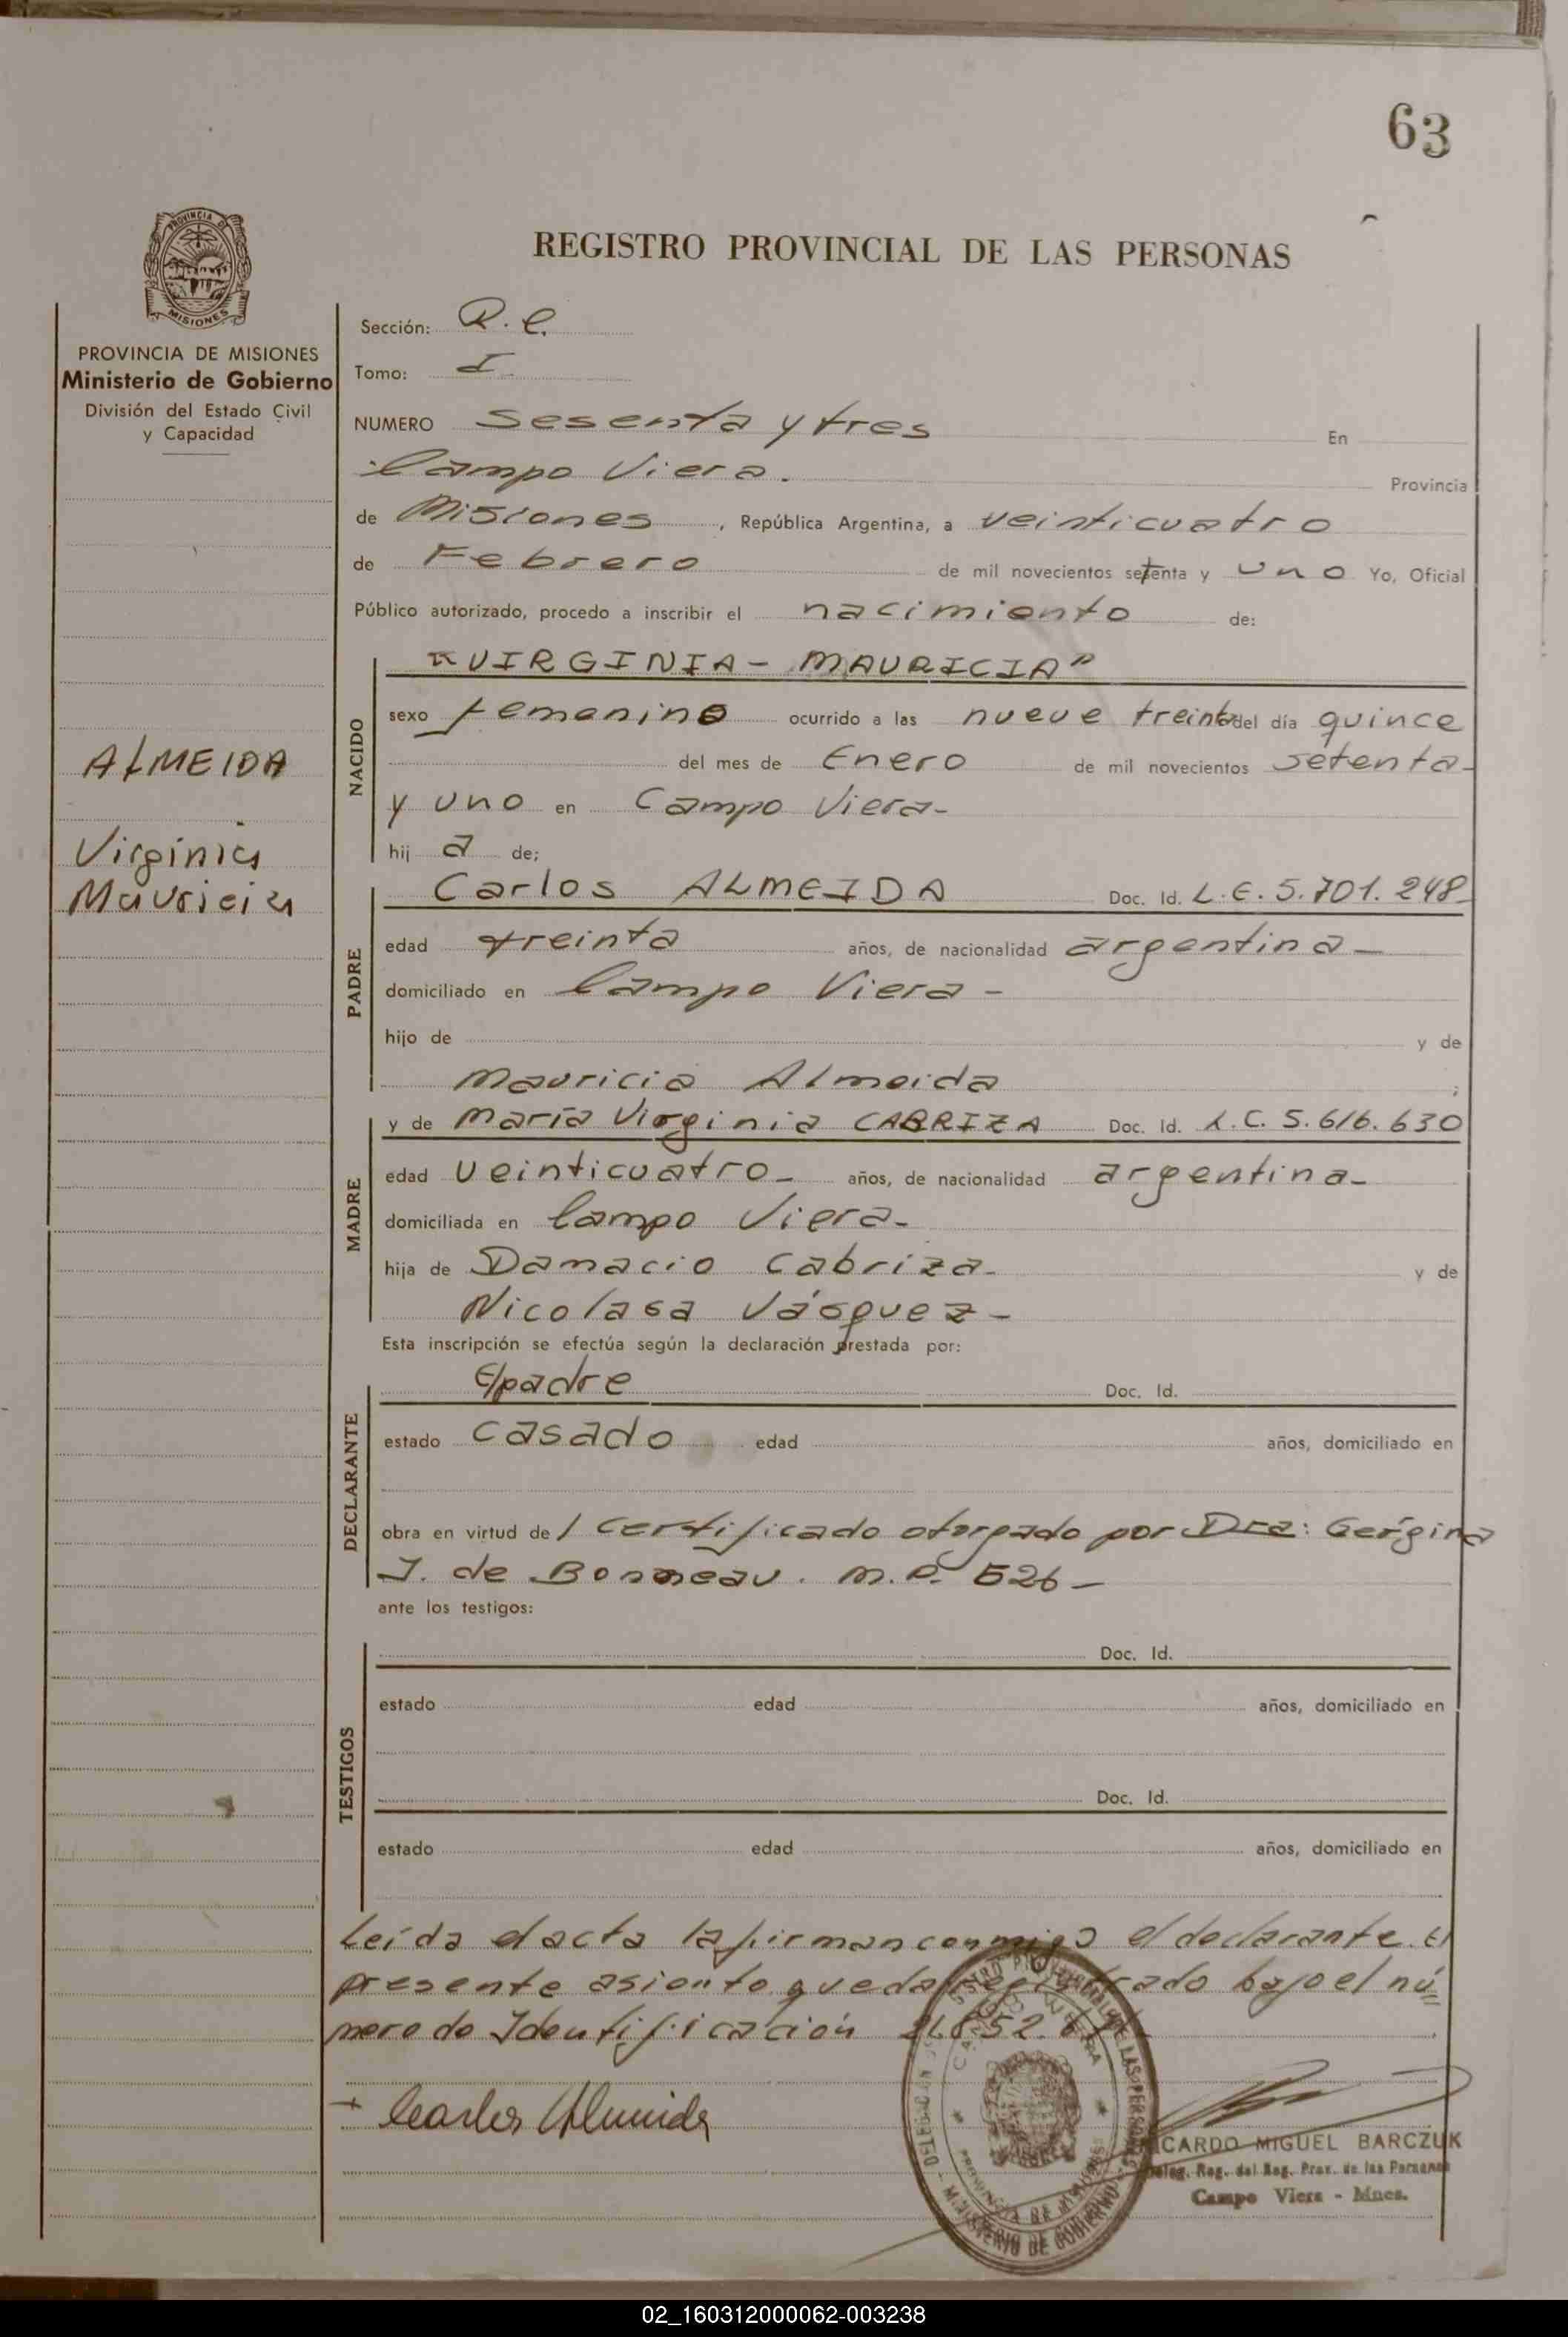 63
REGISTRO PROVINCIAL DE LAS PERSONAS
PROVINCIA DE MISIONES
Ministerio de Gobierno
División del Estado Civil
y Capacidad
ALMEIDA
Virginia
Mauricia
Sección: R. C.
Tomo: I
NUMERO Sesenta y tres En
Campo Viera. Provincia
de Misiones, República Argentina, a veinticuatro
de Febrero de mil novecientos setenta y uno Yo, Oficial
Público autorizado, procedo a inscribir el nacimiento de:
NACIDO
"VIRGINIA - MAURICIA"
sexo femenino ocurrido a las nueve treinta del día quince
del mes de Enero de mil novecientos setenta
y uno en Campo Viera-
hij a de;
PADRE
Carlos ALMEIDA Doc. Id. L.E. 5.701.248
edad treinta años, de nacionalidad argentina-
domiciliado en Campo Viera-
hijo de y de
Mauricia Almeida ;
MADRE
y de María Virginia CABRIZA Doc. Id. L.C. 5.616.630
edad veinticuatro- años, de nacionalidad argentina-
domiciliada en Campo Viera-
hija de Damacio Cabriza- y de
Nicolasa Vásquez-
Esta inscripción se efectúa según la declaración prestada por:
DECLARANTE
El padre Doc. Id.
estado casado edad años, domiciliado en
obra en virtud de 1 certificado otorgado por Dra:
J. de Bonneau. M.P. 526-
ante los testigos:
TESTIGOS
Doc. Id.
estado edad años, domiciliado en
Doc. Id.
estado edad años, domiciliado en
Leída el acta la firman conmigo el declarante. El
presente asiento queda registrado bajo el nú=
mero de Identificación
Carlos Almeida
MINISTERIO DE GOBIERNO
RICARDO MIGUEL BARCZUK
Deleg. Reg. del Reg. Prov. de las Personas
Campo Viera - Mnes.
02_160312000062-003238